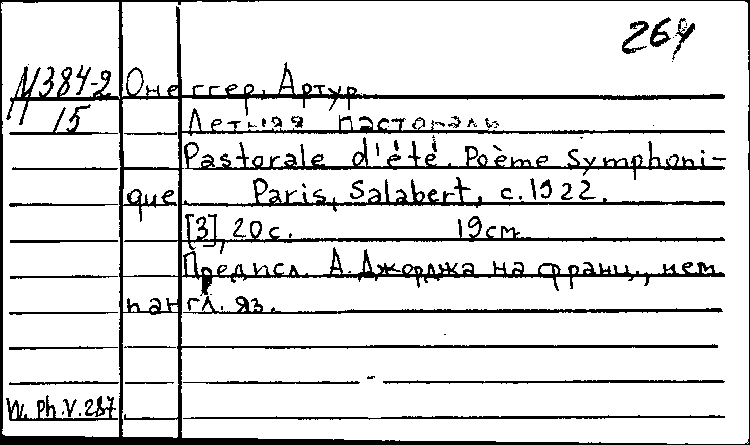 264
М384-2 Онеггер, Артур.
15 Летняя пастораль
Pastorale d'été. Poème Symphoni-
que. Paris, Salabert, c.1922.
[3], 20 с. 19 см
Предисл. А. Джорджа на франц., нем.
и англ. яз.
W. Ph. V. 287